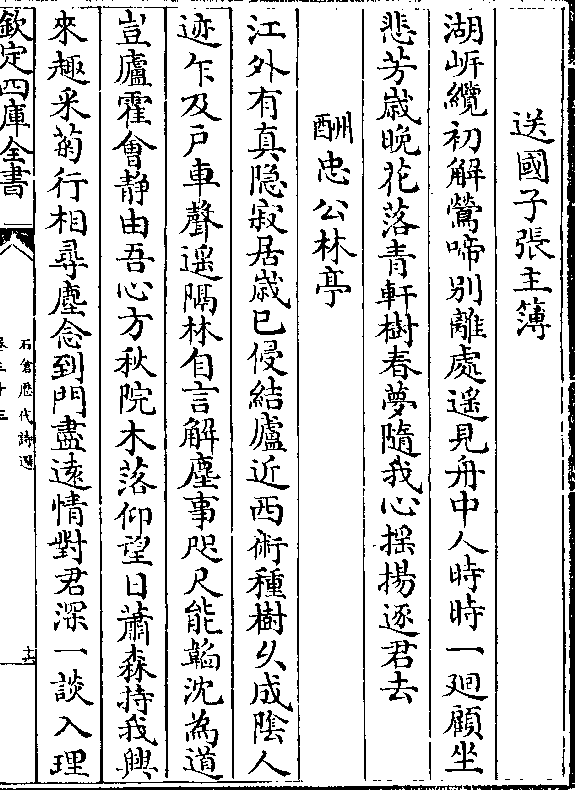 送國子張主簿
湖岍纜初解鶯啼别離處遥見舟中人時時一廻顧坐
悲芳嵗晚花落青軒樹春夢隨我心揺揚逐君去
酬忠公林亭
江外有真隐寂居嵗已侵結廬近西術種樹久成隂人
迹乍及戸車聲遥隔林自言解塵事咫尺能韜沈為道
豈廬霍會静由吾心方秋院木落仰望日蕭森持我興
來趣采菊行相尋塵念到門盡逺情對君深一談入理
欽定四庫全書
石倉歴代詩選